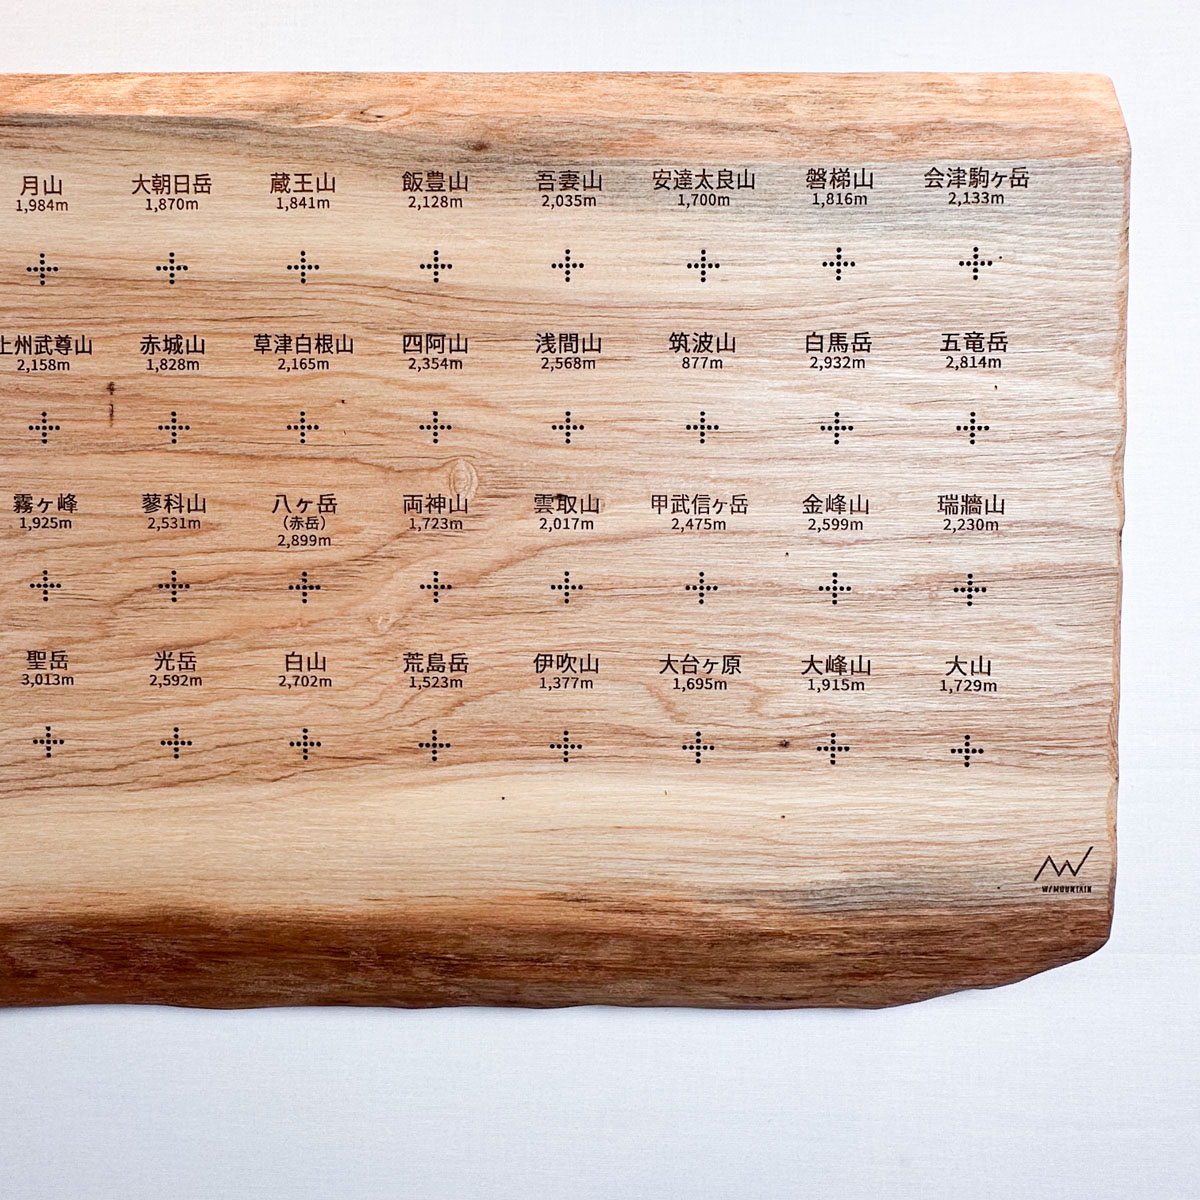 月山 大朝日岳 蔵王山 飯豊山 吾妻山 安達太良山 磐梯山 会津駒ヶ岳
1,984m 1,870m 1,841m 2,128m 2,035m 1,700m 1,816m 2,133m
上州武尊山 赤城山 草津白根山 四阿山 浅間山 筑波山 白馬岳 五竜岳
2,158m 1,828m 2,165m 2,354m 2,568m 877m 2,932m 2,814m
霧ヶ峰 蓼科山 八ヶ岳 両神山 雲取山 甲武信ヶ岳 金峰山 瑞牆山
1,925m 2,531m (赤岳) 1,723m 2,017m 2,475m 2,599m 2,230m
2,899m
聖岳 光岳 白山 荒島岳 伊吹山 大台ヶ原 大峰山 大山
3,013m 2,592m 2,702m 1,523m 1,377m 1,695m 1,915m 1,729m
W/MOUNTAIN